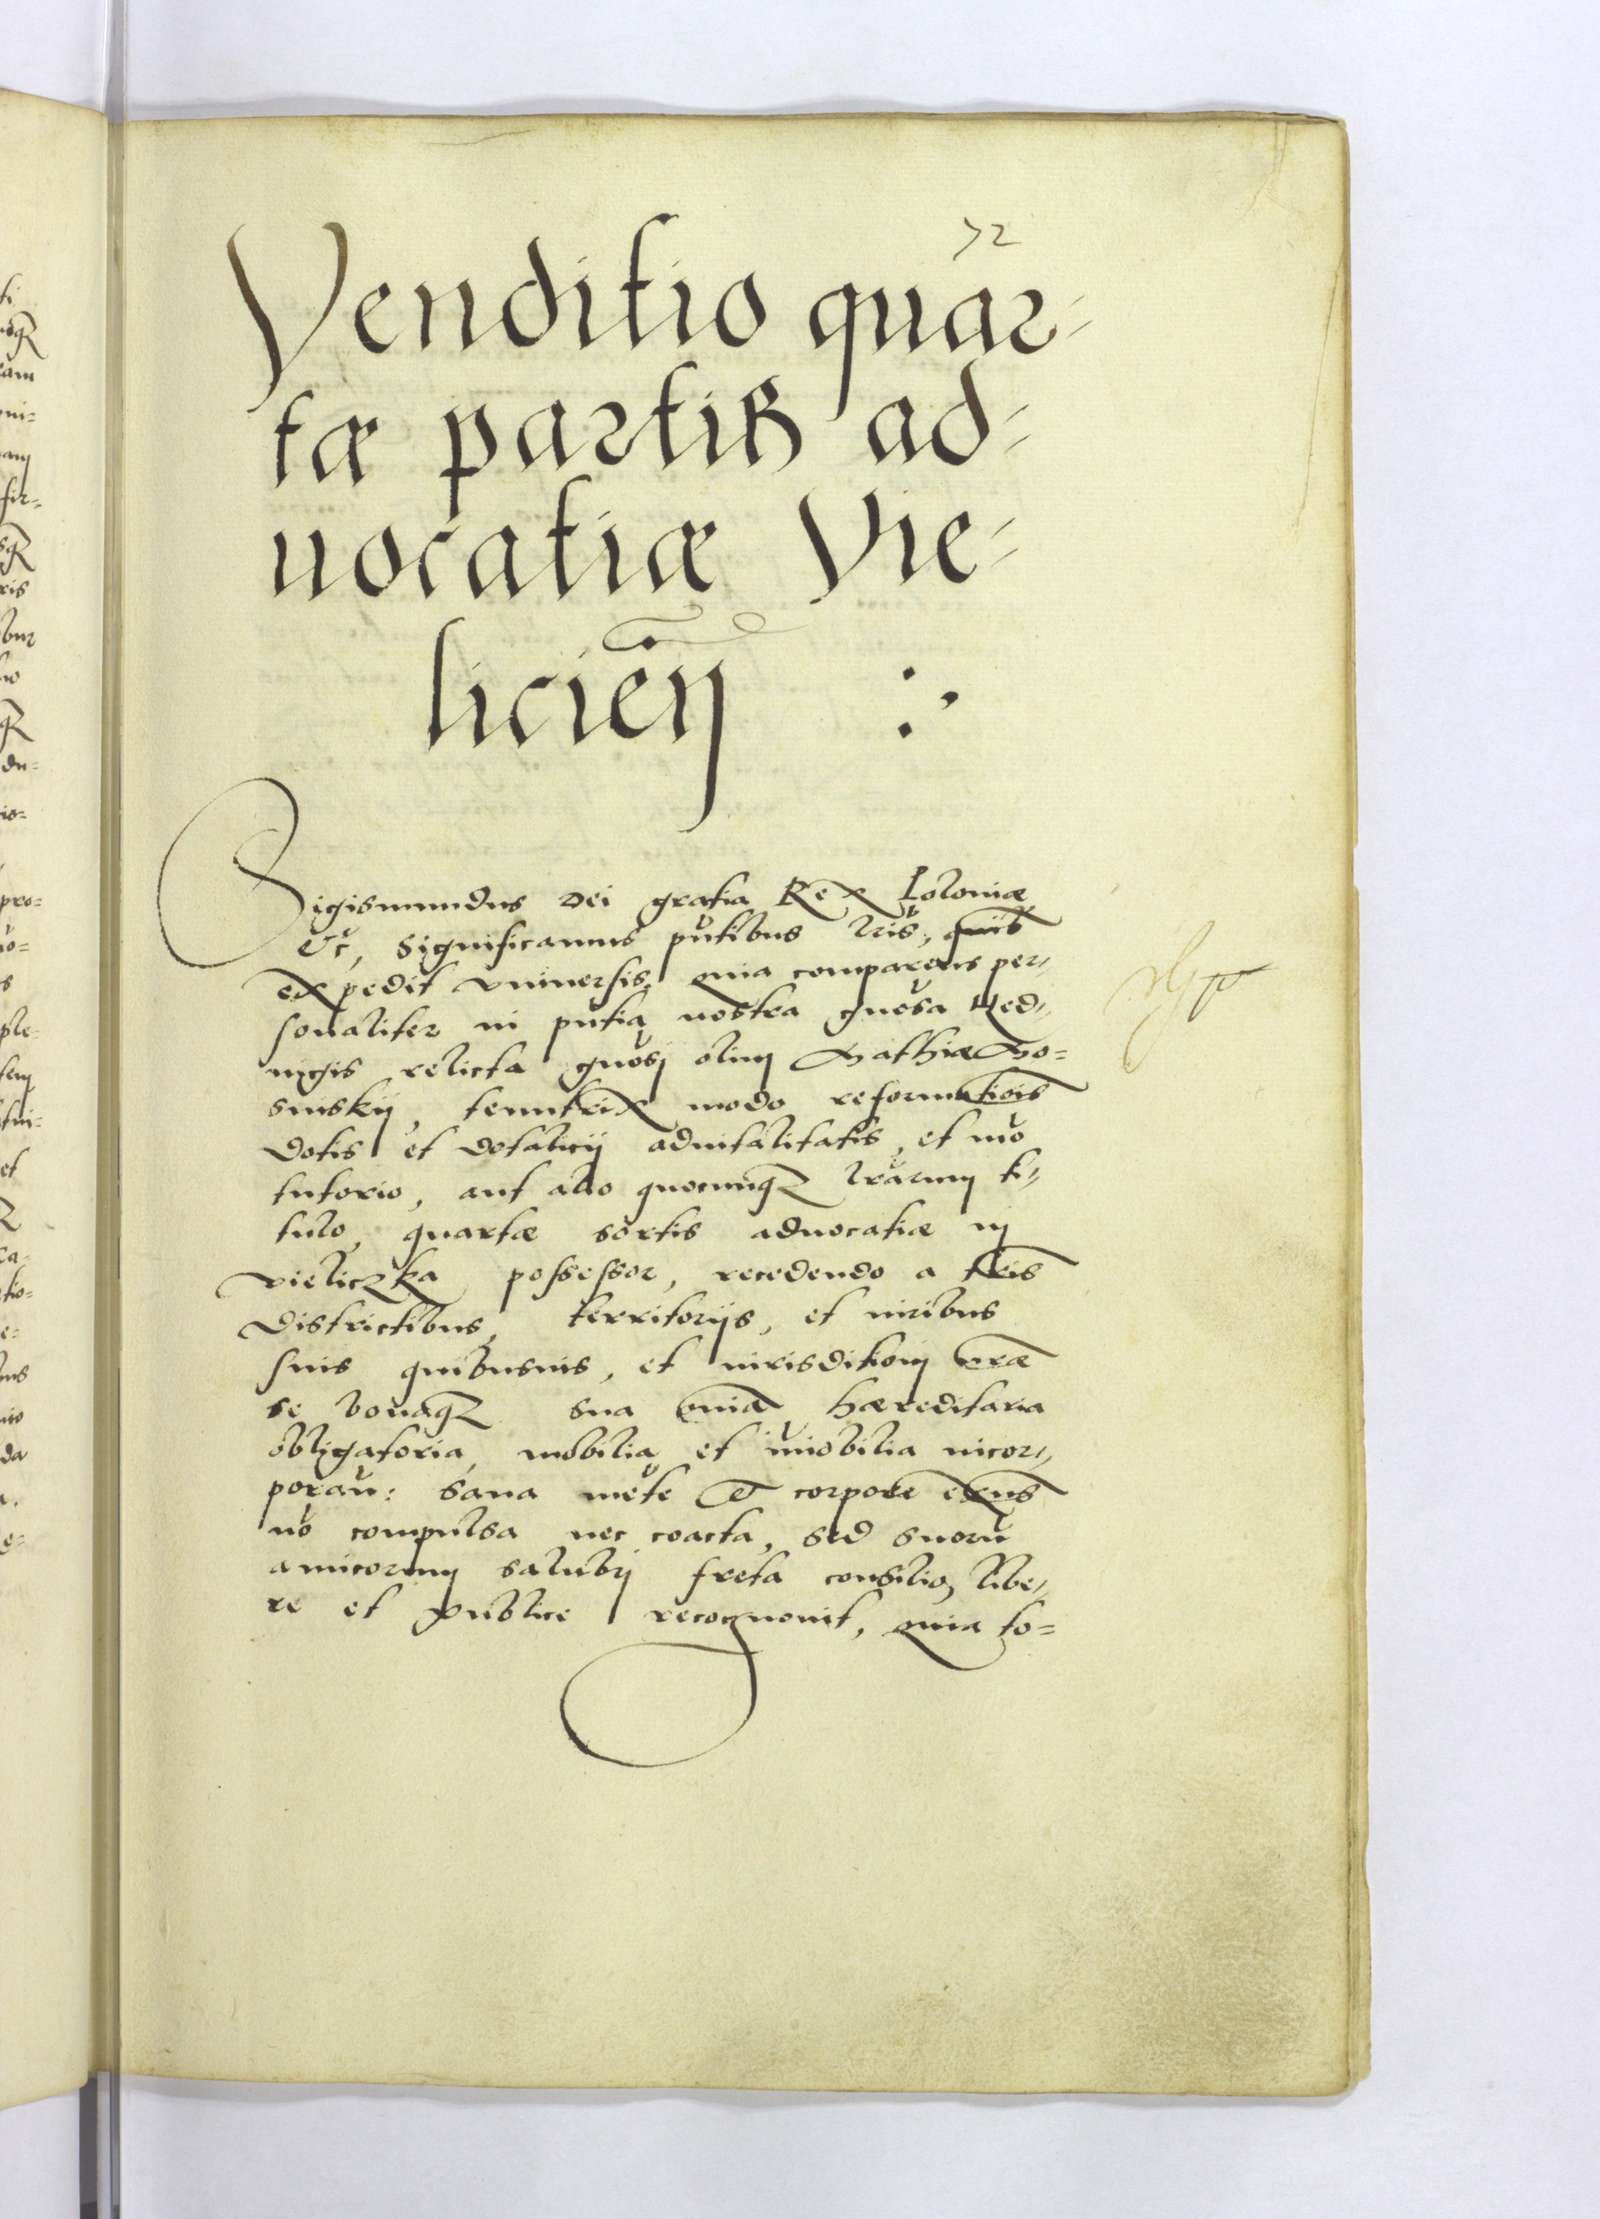 72
Venditio quar-
tæ partis ad-
uocatiæ Vie-
licieñ :
Sigismundus Dei gratia Rex Poloniæ
&c, Significamus pñtibus lr̃is, quib
expedit vniuersis, quia comparens per-
sonaliter in pñtia nostra gñosa Hed-
uigis relicta gñosi olim Mathiæ Mo-
suskij, tenutrix modo reformatiõis
dotis et dotalicij aduitalitatis, et iur̃e
tutorio, aut alio quocunq3 lr̃arum ti-
tulo, quartæ sortis aduocatiæ in
vieliczka possessor, recedendo a tr̃is
Districtibus, territorijs, et iuribus
suis quibusuis, et iurisditioni vr̃æ
se bonaq3 sua om̃ia hæreditaria
obligatoria, mobilia et im̃obilia incor-
poran: Sana mẽte et corpore exñs
nõ compulsa nec coacta, sed suorũ
amicorum salubri freta consilio, libe-
re et publice recognouit, quia to-